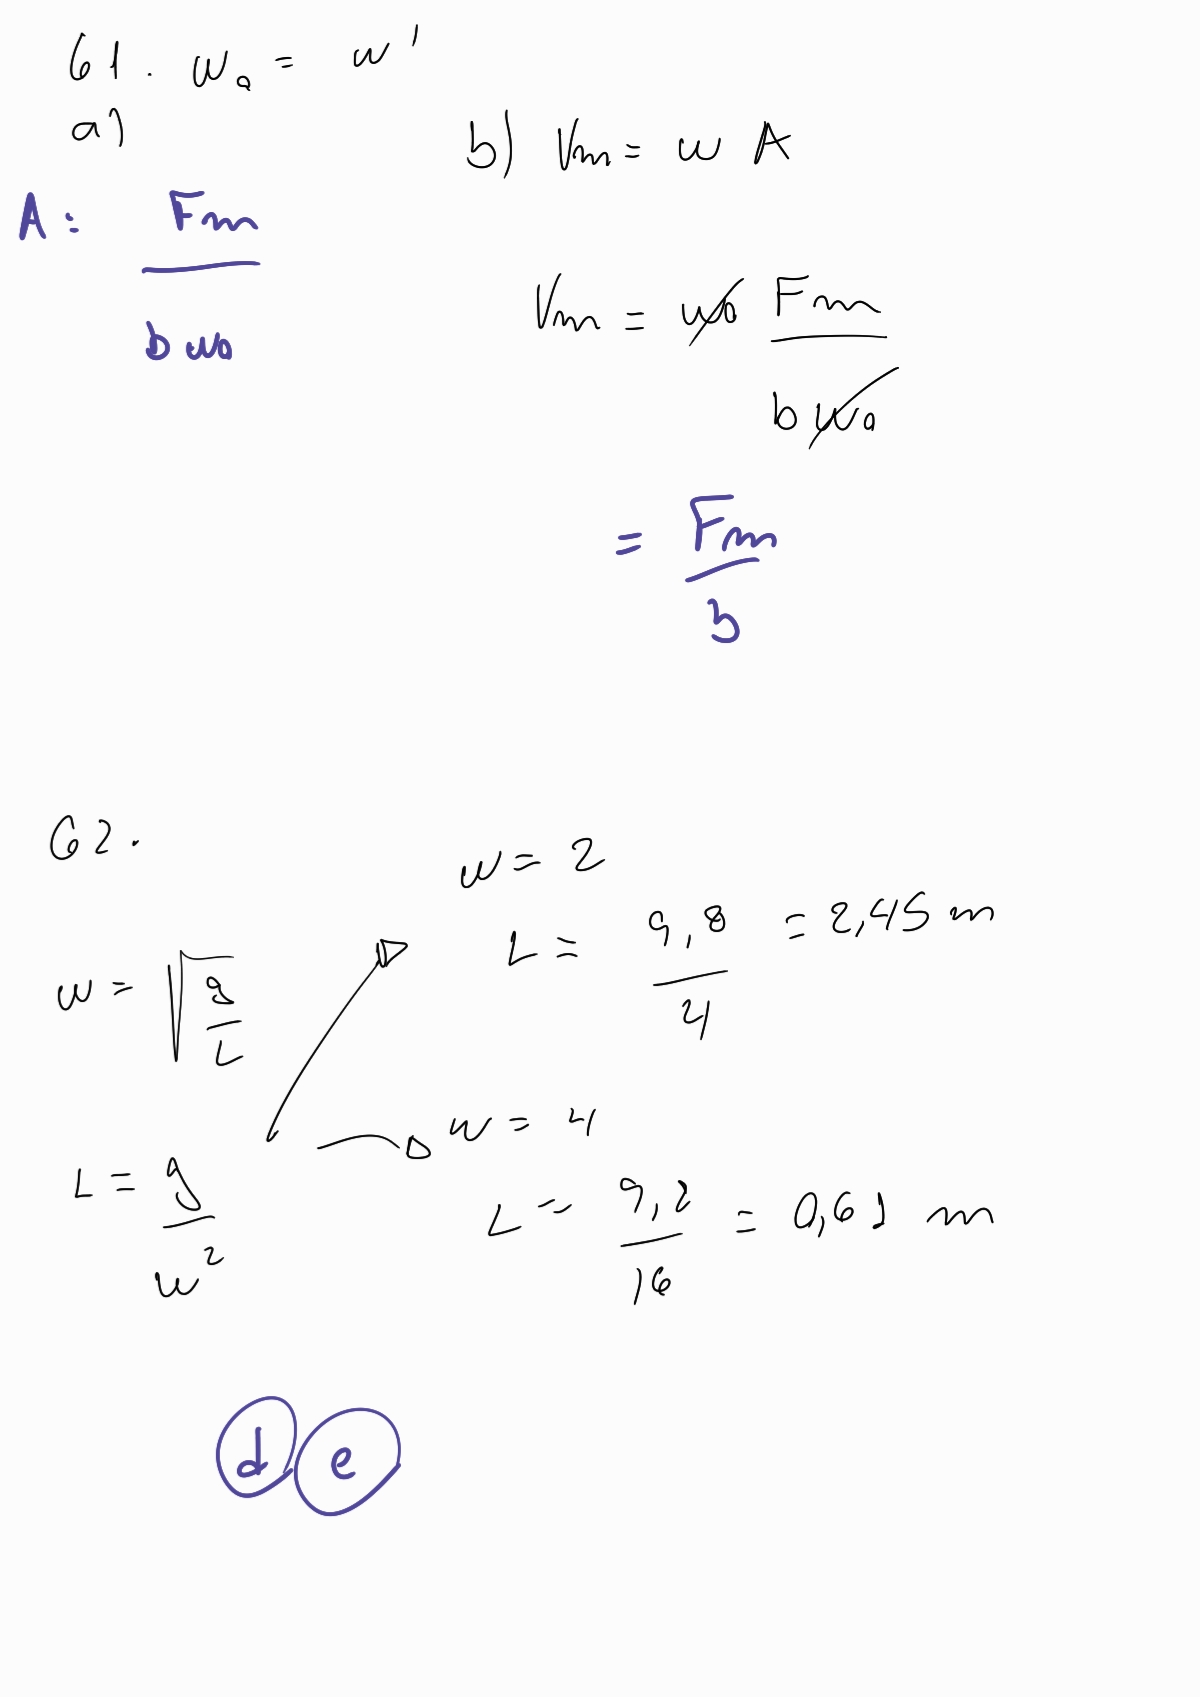 61. w₀ = w'
a)
A = Fm / b w₀
b) Vm = w A
Vm = w₀ Fm / b w₀
= Fm / b
62.
w = √(g / L)
L = g / w²
w = 2
L = 9,8 / 4 = 2,45 m
w = 4
L = 9,2 / 16 = 0,61 m
d e